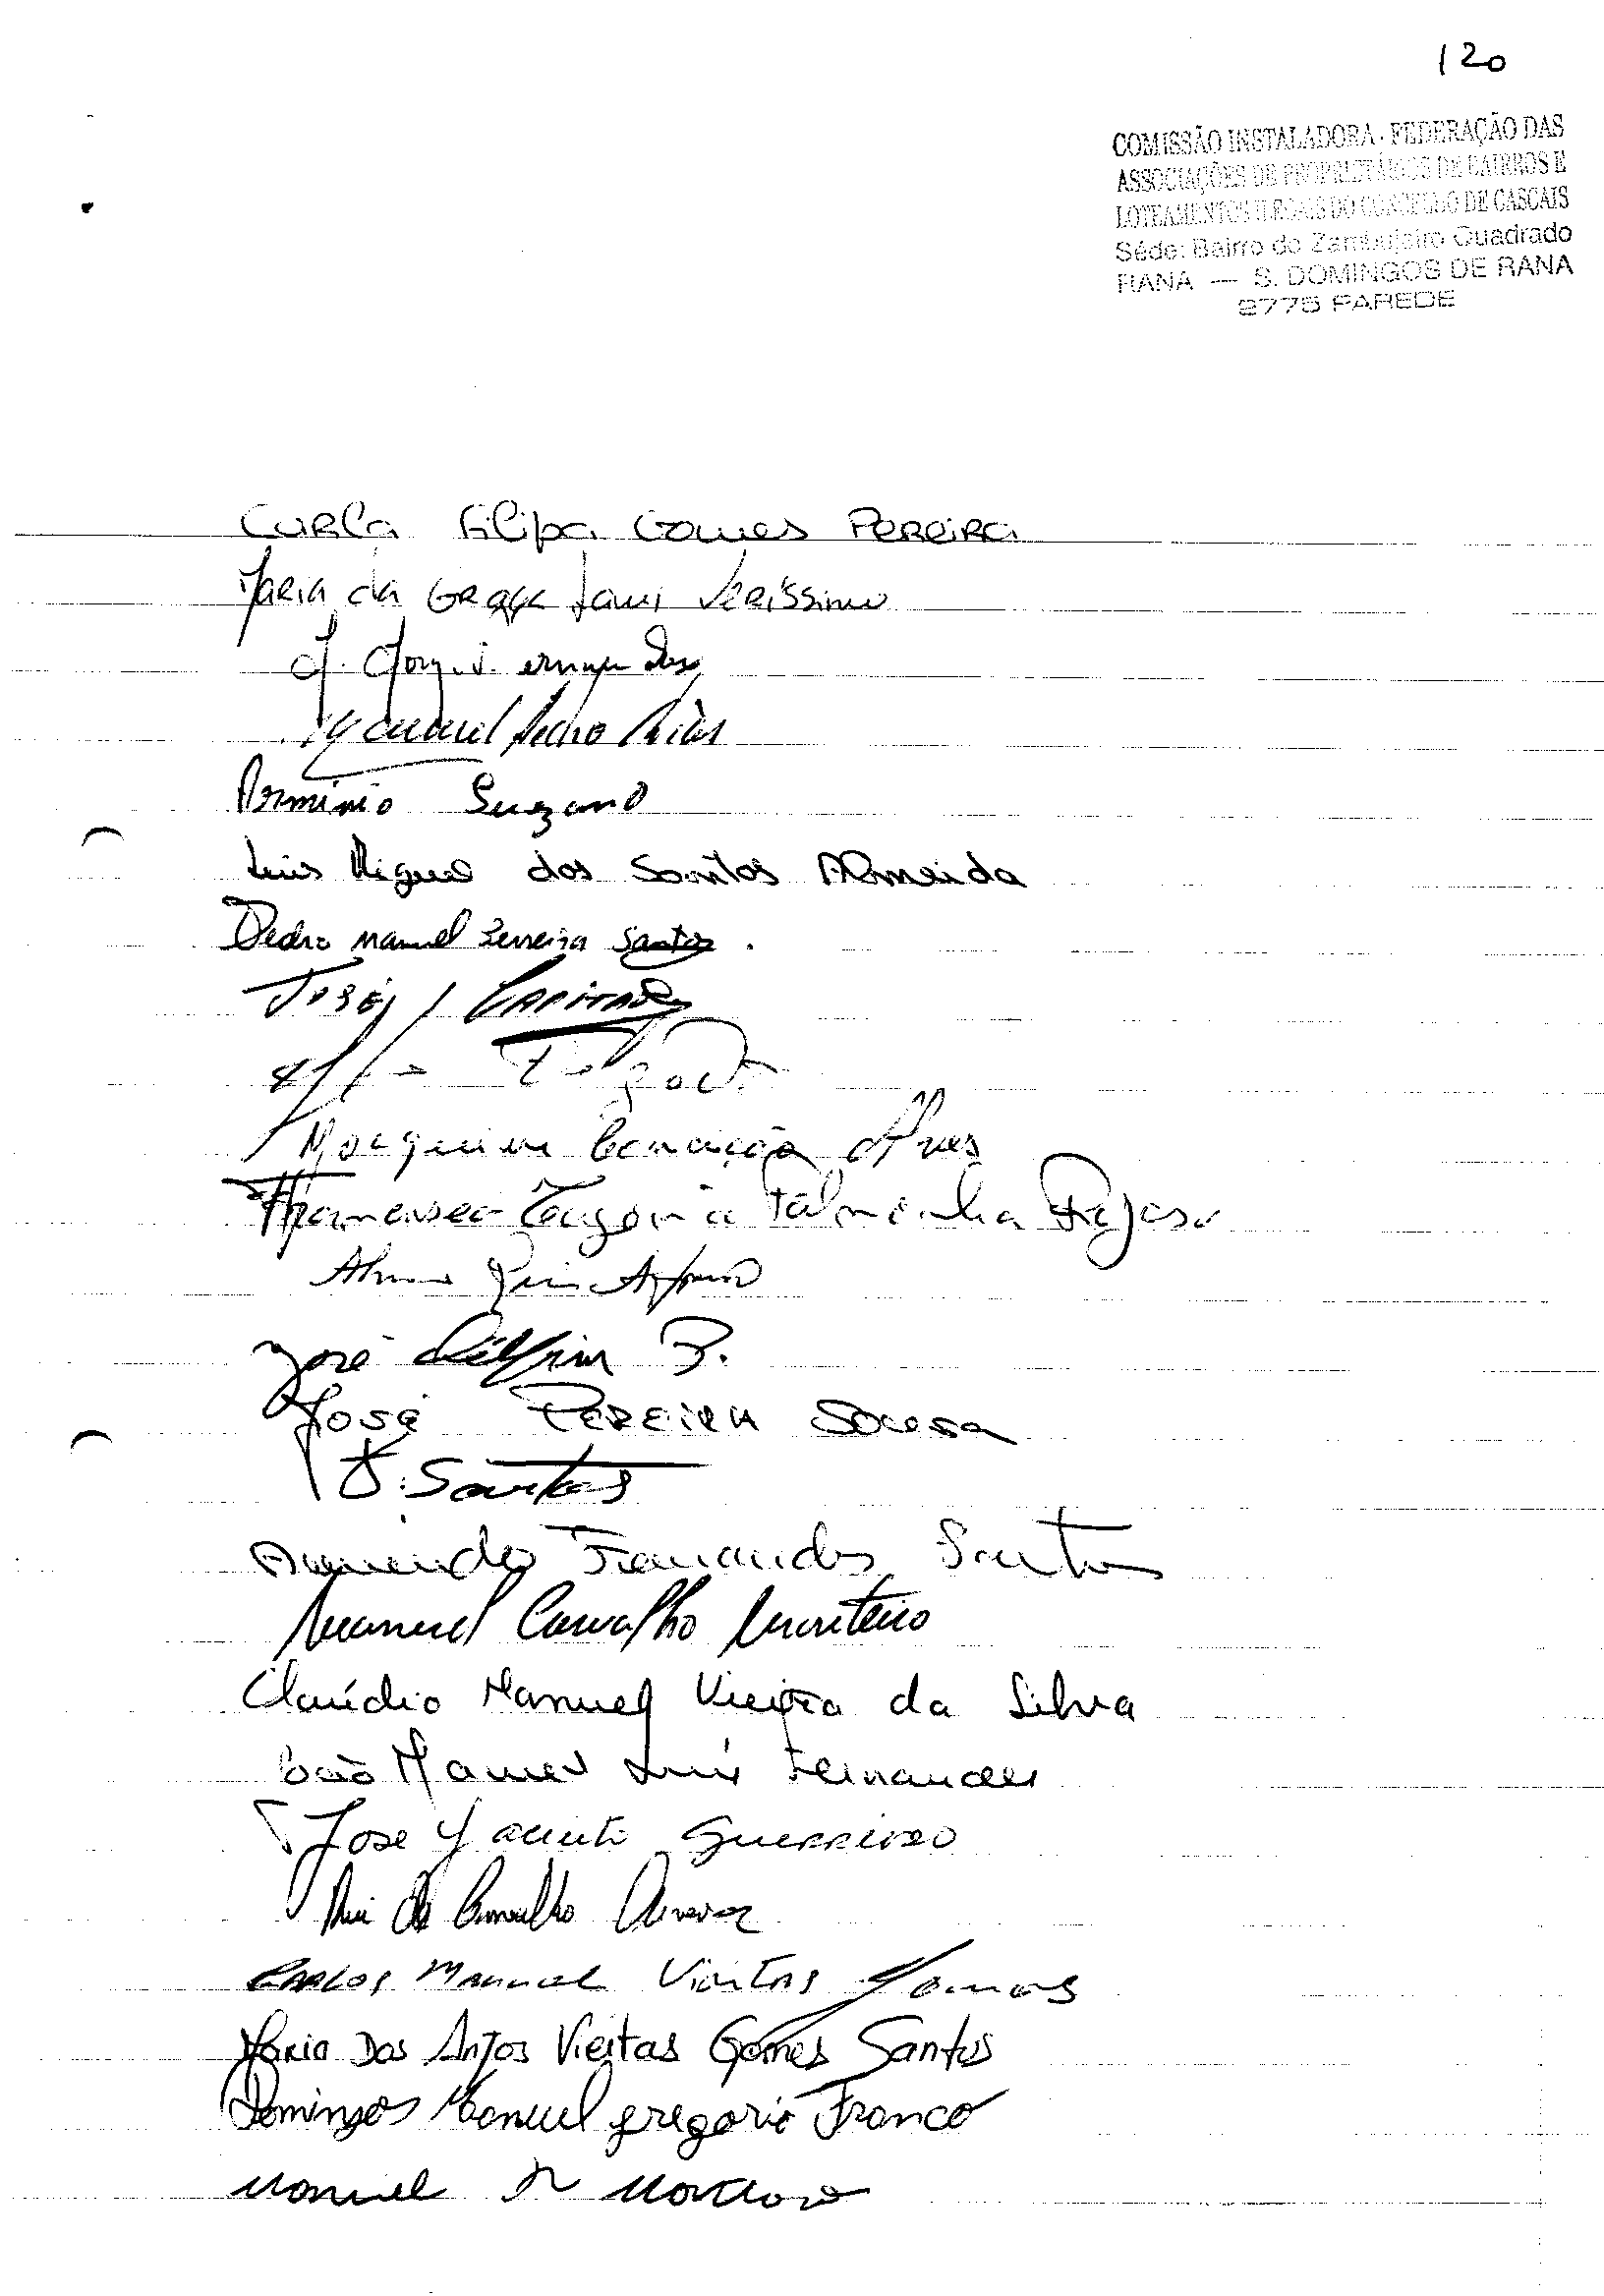 120
COMISSÃO INSTALADORA - FEDERAÇÃO DAS
ASSOCIAÇÕES DE PROPRIETÁRIOS DE BAIRROS E
LOTEAMENTOS ILEGAIS DO CONCELHO DE CASCAIS
Séde: Bairro do Zambujeiro Quadrado
RANA — S. DOMINGOS DE RANA
2775 PAREDE
Carla Filipa Gomes Pereira
Maria da Graça Veríssimo
Manuel Pedro
Arminio Suzano
Luis Miguel dos Santos Almeida
Pedro Manuel Ferreira Santos.
José Capitão
Conceição Alves
Palminha
Afonso
José Delfim P.
José Pereira Sousa
J. Santos
Armindo Fernandes Santos
Manuel Carvalho Monteiro
Claúdio Manuel Vieira da Silva
João Manuel Luís Fernandes
Jose Jacinto Guerreiro
Rui de Carvalho
Carlos Manuel Vieitas Gomes
Maria Dos Anjos Vieitas Gomes Santos
Domingos Manuel Gregorio Franco
Manuel